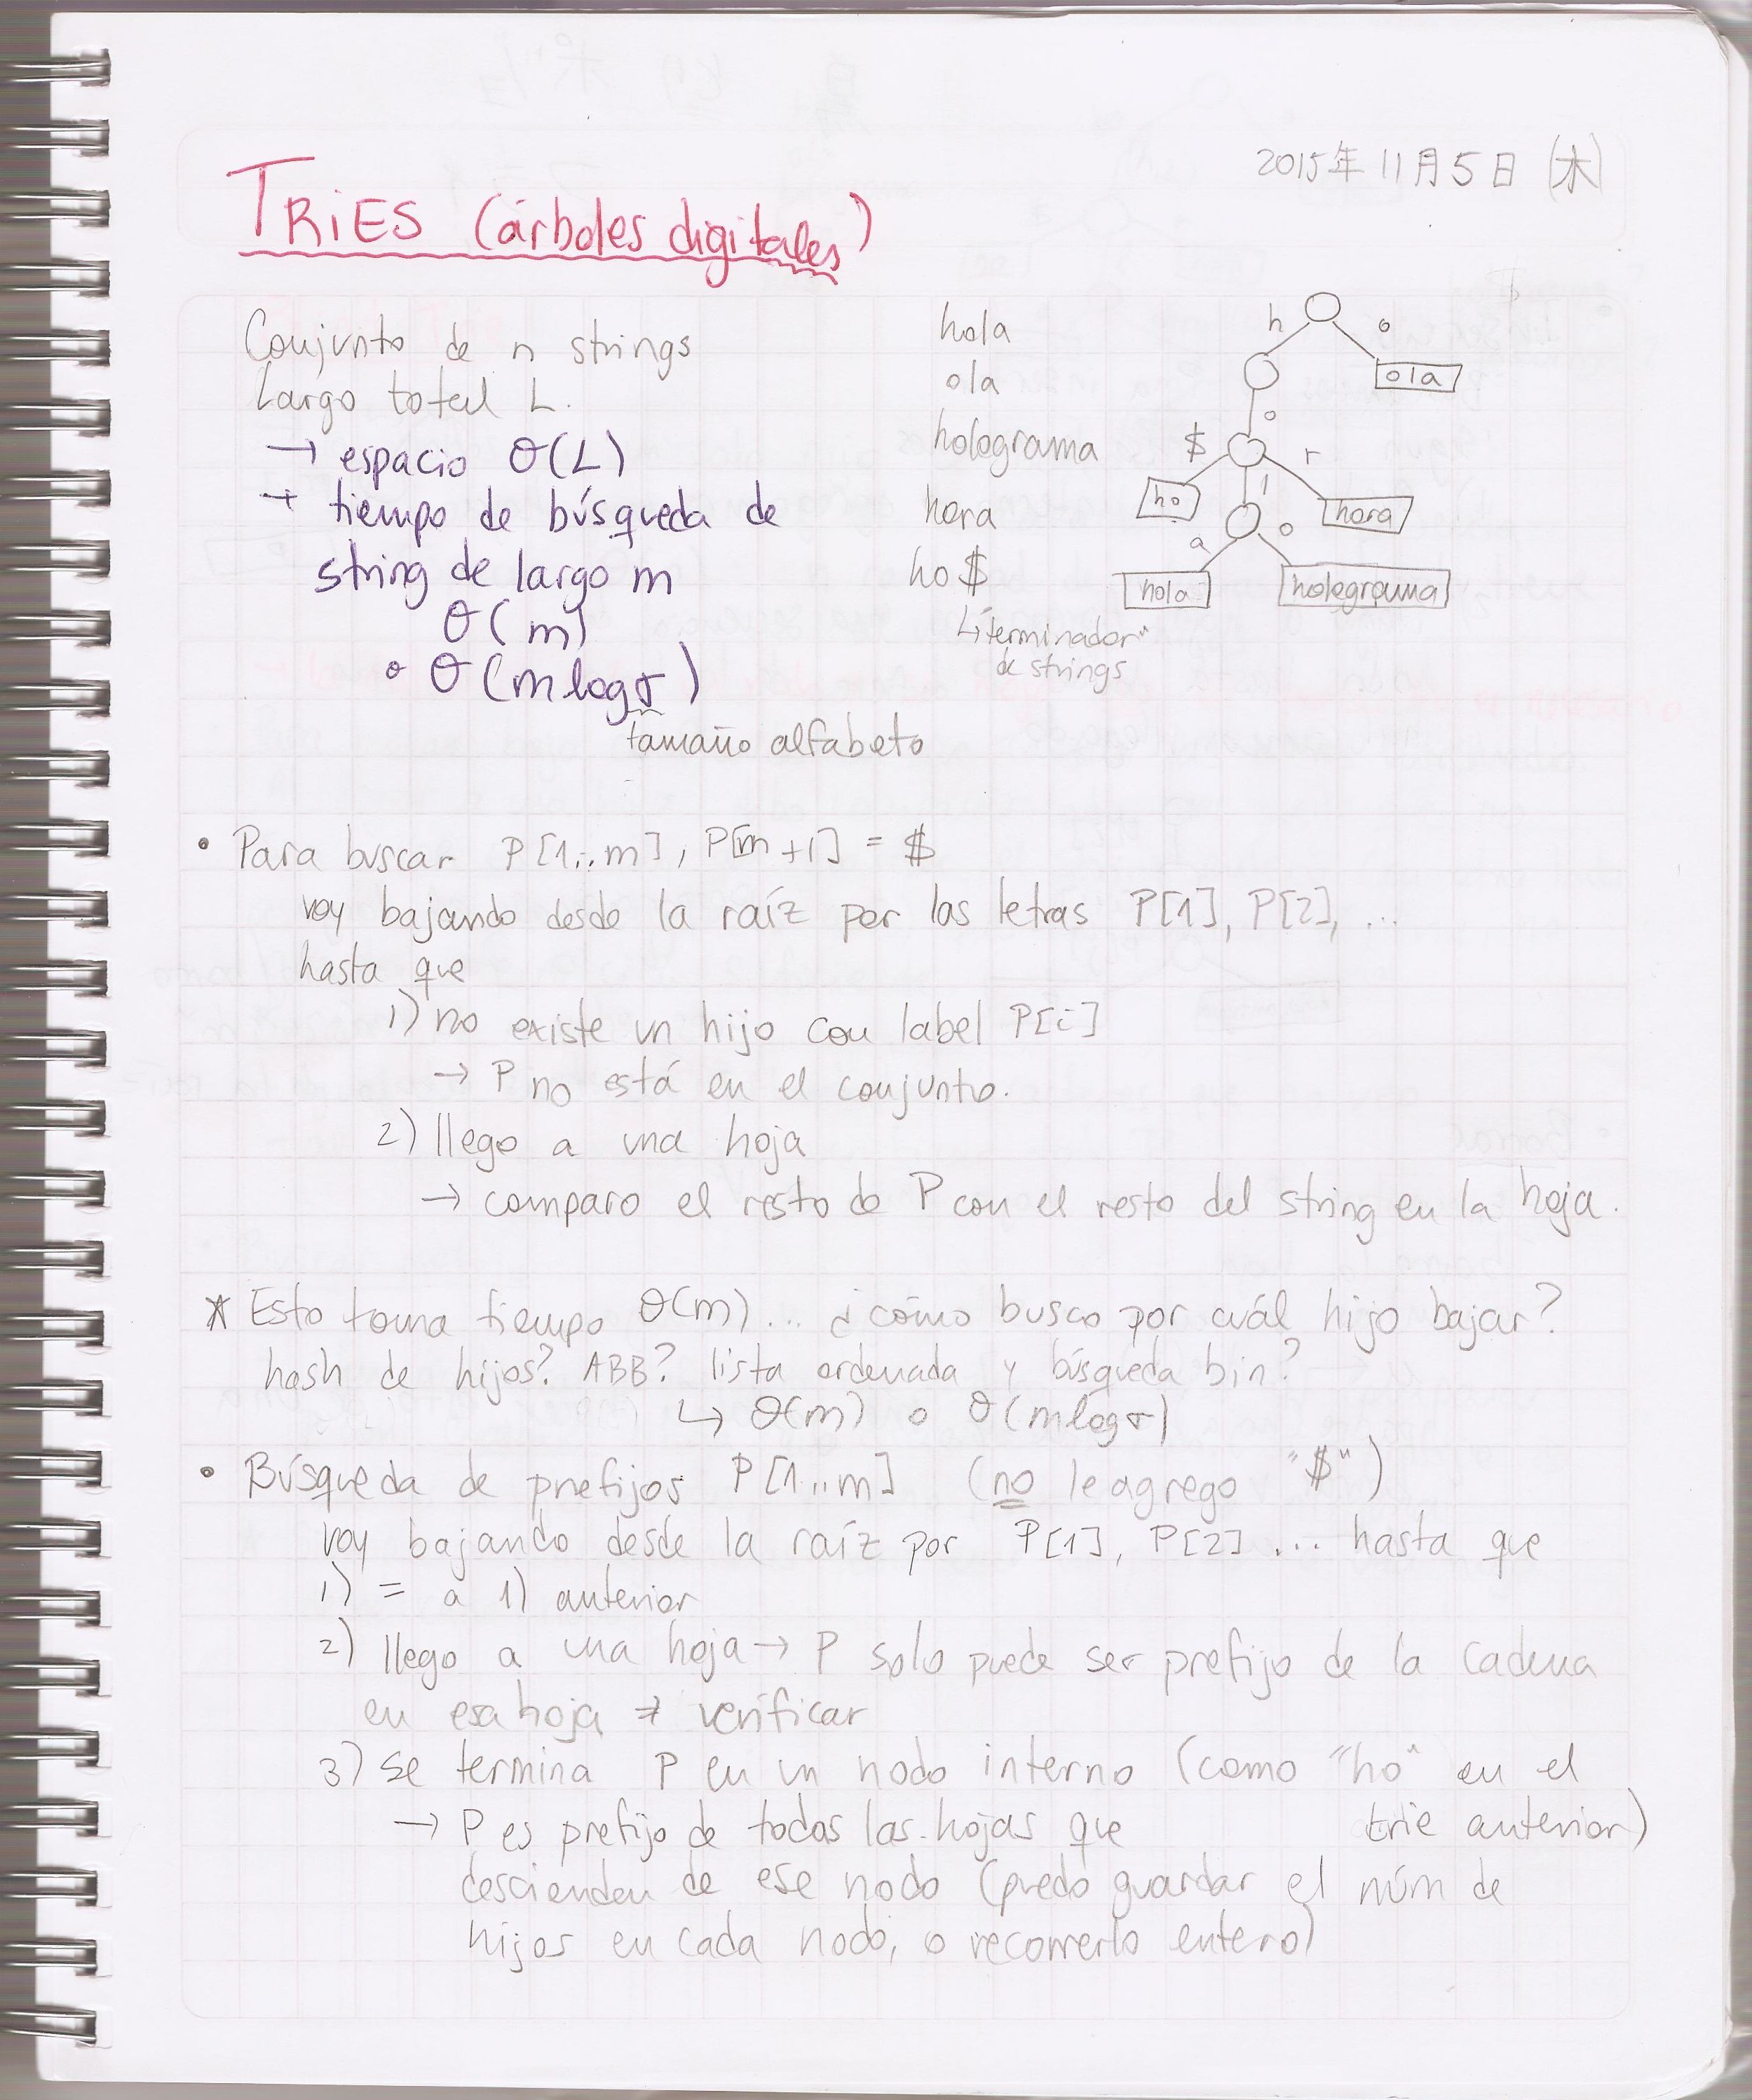 2015年11月5日 (木)
TRiES (árboles digitales)
Conjunto de n strings
Largo total L.
→ espacio Θ(L)
→ tiempo de búsqueda de
string de largo m
Θ(m)
o Θ(m log σ)
tamaño alfabeto
hola
ola
holograma
hora
ho$
↳ "terminador"
de strings
h o
ola
o
$ r
ho l hora
a o
hola holograma
• Para buscar P[1..m], P[m+1] = $
voy bajando desde la raíz por las letras P[1], P[2], ...
hasta que
1) no existe un hijo con label P[i]
→ P no está en el conjunto.
2) llego a una hoja
→ comparo el resto de P con el resto del string en la hoja.
* Esto toma tiempo Θ(m)... ¿cómo busco por cuál hijo bajar?
hash de hijos? ABB? lista ordenada y búsqueda bin?
↳ Θ(m) o Θ(m log σ)
• Búsqueda de prefijos P[1..m] (no le agrego "$")
voy bajando desde la raíz por P[1], P[2] ... hasta que
1) = a 1) anterior
2) llego a una hoja → P solo puede ser prefijo de la cadena
en esa hoja → verificar
3) se termina P en un nodo interno (como "ho" en el
trie anterior)
→ P es prefijo de todas las hojas que
descienden de ese nodo (puedo guardar el núm de
hijos en cada nodo, o recorrerlo entero)